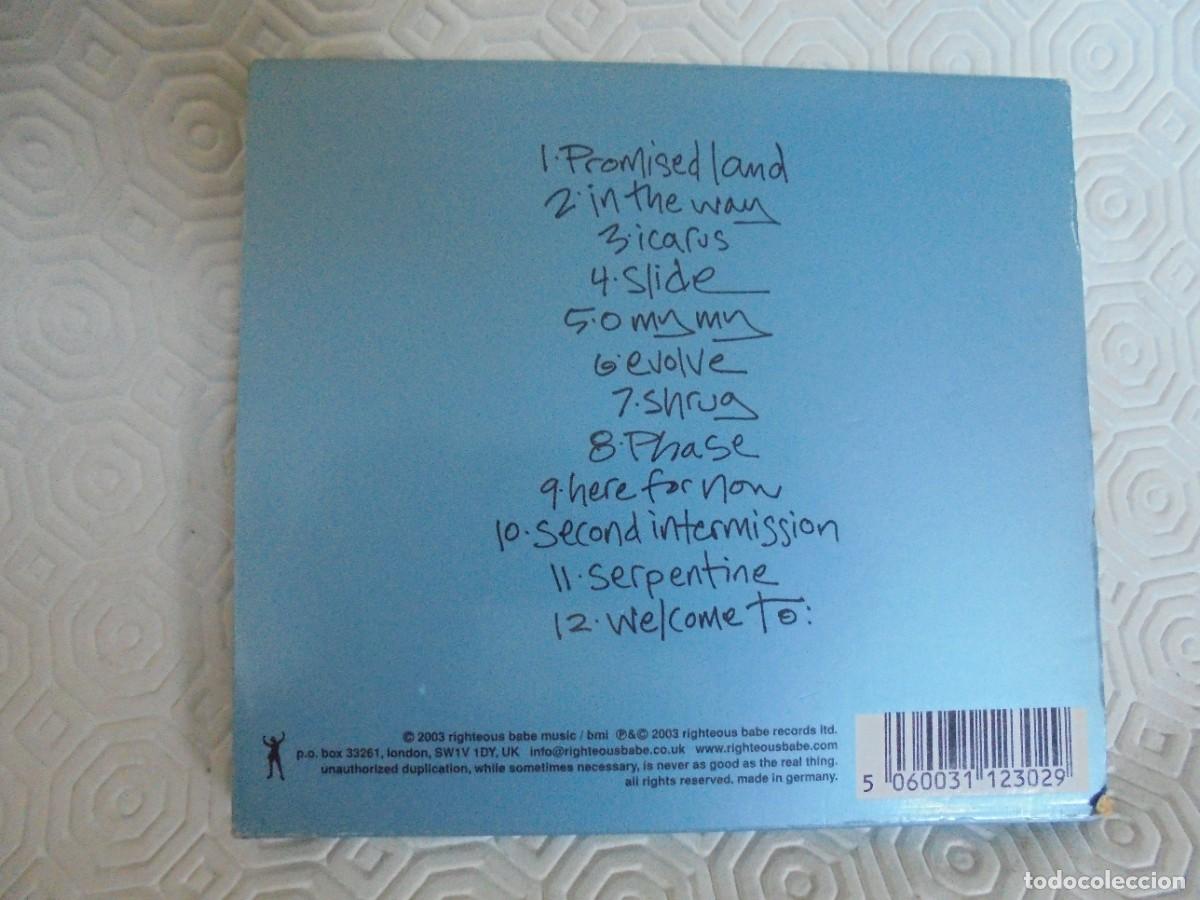 1. Promised land
2. in the way
3. icarus
4. slide
5. o my my
6. evolve
7. shrug
8. Phase
9. here for now
10. second intermission
11. serpentine
12. welcome to:
© 2003 righteous babe music / bmi ℗&© 2003 righteous babe records ltd.
p.o. box 33261, london, SW1V 1DY, UK info@righteousbabe.co.uk www.righteousbabe.com
unauthorized duplication, while sometimes necessary, is never as good as the real thing.
all rights reserved. made in germany.
5 060031 123029
todocoleccion